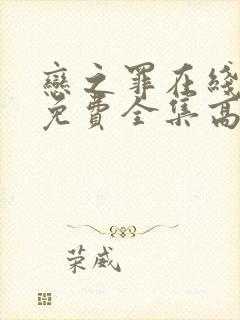 戀之罪在綫
免費全集高
荣威